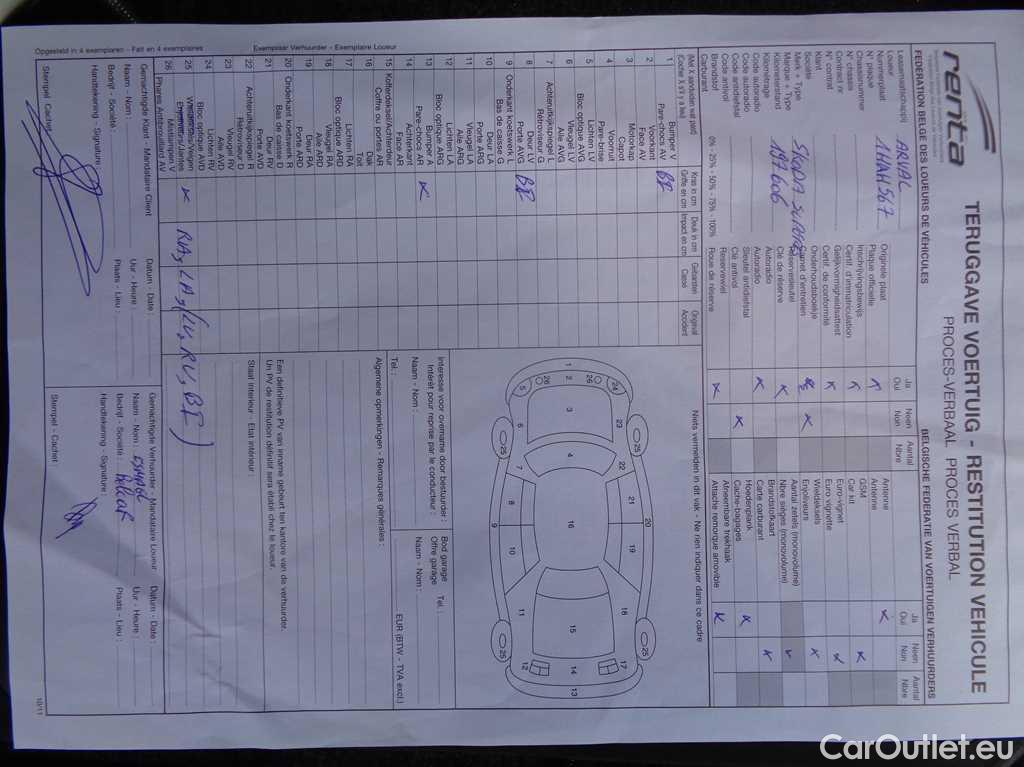 renta
TERUGGAVE VOERTUIG - RESTITUTION VEHICULE
PROCES-VERBAAL PROCES VERBAL
FEDERATION BELGE DES LOUEURS DE VÉHICULES
BELGISCHE FEDERATIE VAN VOERTUIGEN VERHUURDERS
Leasemaatschappij
Loueur
ARVAL
Nummerplaat
N° plaque
1HAH567
Chassisnummer
N° chassis
Contract nr.
N° contrat
Klant
Société
Merk + Type
Marque + Type
SKODA SUPERB
Kilometerstand
Kilométrage
197606
Code autoradio
Code autoradio
Code antidiefstal
Code antivol
Brandstof
Carburant
0% - 25% - 50% - 75% - 100%
Ja Neen Aantal
Oui Non Nbre
Originele plaat
Plaque officielle
Inschrijvingsbewijs
Certif. d'immatriculation
Gelijkvormigheidsattest
Certif. de conformité
Onderhoudsboekje
Carnet d'entretien
Reservesleutel
Clé de réserve
Autoradio
Autoradio
Sleutel antidiefstal
Clé antivol
Reservewiel
Roue de réserve
Ja Neen Aantal
Oui Non Nbre
Antenne
Antenne
GSM
Car kit
Euro-vignet
Euro vignette
Wieldeksels
Enjoliveurs
Aantal zetels (monovolume)
Nbre sièges (monovolume)
Brandstofkaart
Carte carburant
Hoedenplank
Cache-bagages
Afneembare trekhaak
Attache remorque amovible
(Met X aanduiden wat past)
(Cochez X s'il y a lieu)
Kras in cm
Griffe en cm
Deuk in cm
Impact en cm
Gebarsten
Cassé
Origineel
Accident
1 Bumper V
Pare-chocs AV
BP
2 Voorkant
Face AV
3 Motorkap
Capot
4 Voorruit
Pare-brise
5 Lichten LV
Bloc optique AVG
6 Vleugel LV
Aile AVG
7 Achteruitkijkspiegel L
Rétroviseur G
8 Deur LV
Porte AVG
BP
9 Onderkant koetswerk L
Bas de caisse G
10 Deur LA
Porte ARG
11 Vleugel LA
Aile ARG
12 Lichten LA
Bloc optique ARG
13 Bumper A
Pare-chocs AR
14 Achterkant
Face AR
15 Kofferdeksel/Achterdeur
Coffre ou portes AR
16 Dak
Toit
17 Lichten RA
Bloc optique ARD
18 Vleugel RA
Aile ARD
19 Deur RA
Porte ARD
20 Onderkant koetswerk R
Bas de caisse D
21 Deur RV
Porte AVD
22 Achteruitkijkspiegel R
Rétroviseur D
23 Vleugel RV
Aile AVD
24 Lichten RV
Bloc optique AVD
25 Wieldeksels/Velgen
Enjoliveurs/Jantes
26 Mistlampen V
Phares Antibrouillard AV
RA, LA, (LV, RV, BP)
Niets vermelden in dit vak - Ne rien indiquer dans ce cadre
Interesse voor overname door bestuurder :
Intérêt pour reprise par le conducteur :
Naam - Nom :
Tel. :
Bod garage
Offre garage
Tel. :
Naam - Nom :
EUR (BTW - TVA excl.)
Algemene opmerkingen - Remarques générales :
Een definitieve PV van inname gebeurt ten kantore van de verhuurder.
Un PV de restitution définitif sera établi chez le loueur.
Staat interieur - Etat intérieur :
Gemachtigde Klant - Mandataire Client
Naam - Nom :
Bedrijf - Société :
Handtekening - Signature :
Stempel - Cachet :
Datum - Date :
Uur - Heure :
Plaats - Lieu :
Gemachtigde Verhuurder - Mandataire Loueur
Naam - Nom :
Bedrijf - Société :
Handtekening - Signature :
Stempel - Cachet :
Datum - Date :
Uur - Heure :
Plaats - Lieu :
Opgesteld in 4 exemplaren - Fait en 4 exemplaires
Exemplaar Verhuurder - Exemplaire Loueur
10/11
CarOutlet.eu